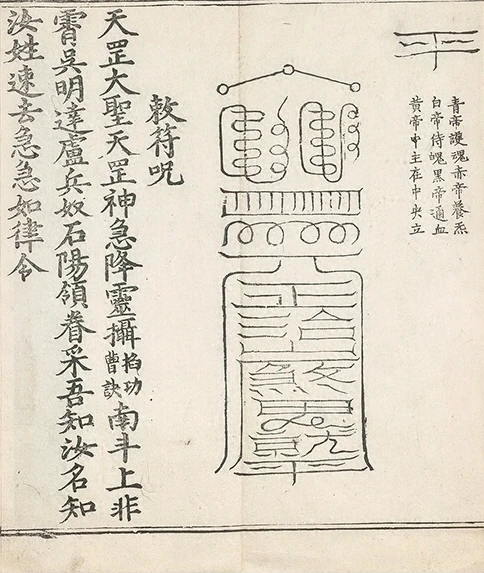 青帝護魂赤帝養炁
白帝侍魄黑帝通血
黃帝中主在中央立
敕符呪
天罡大聖天罡神急降靈攝掐功曹訣南斗上非
霄吳明達盧兵奴石陽領眷采吾知汝名知
汝姓速去急急如律令